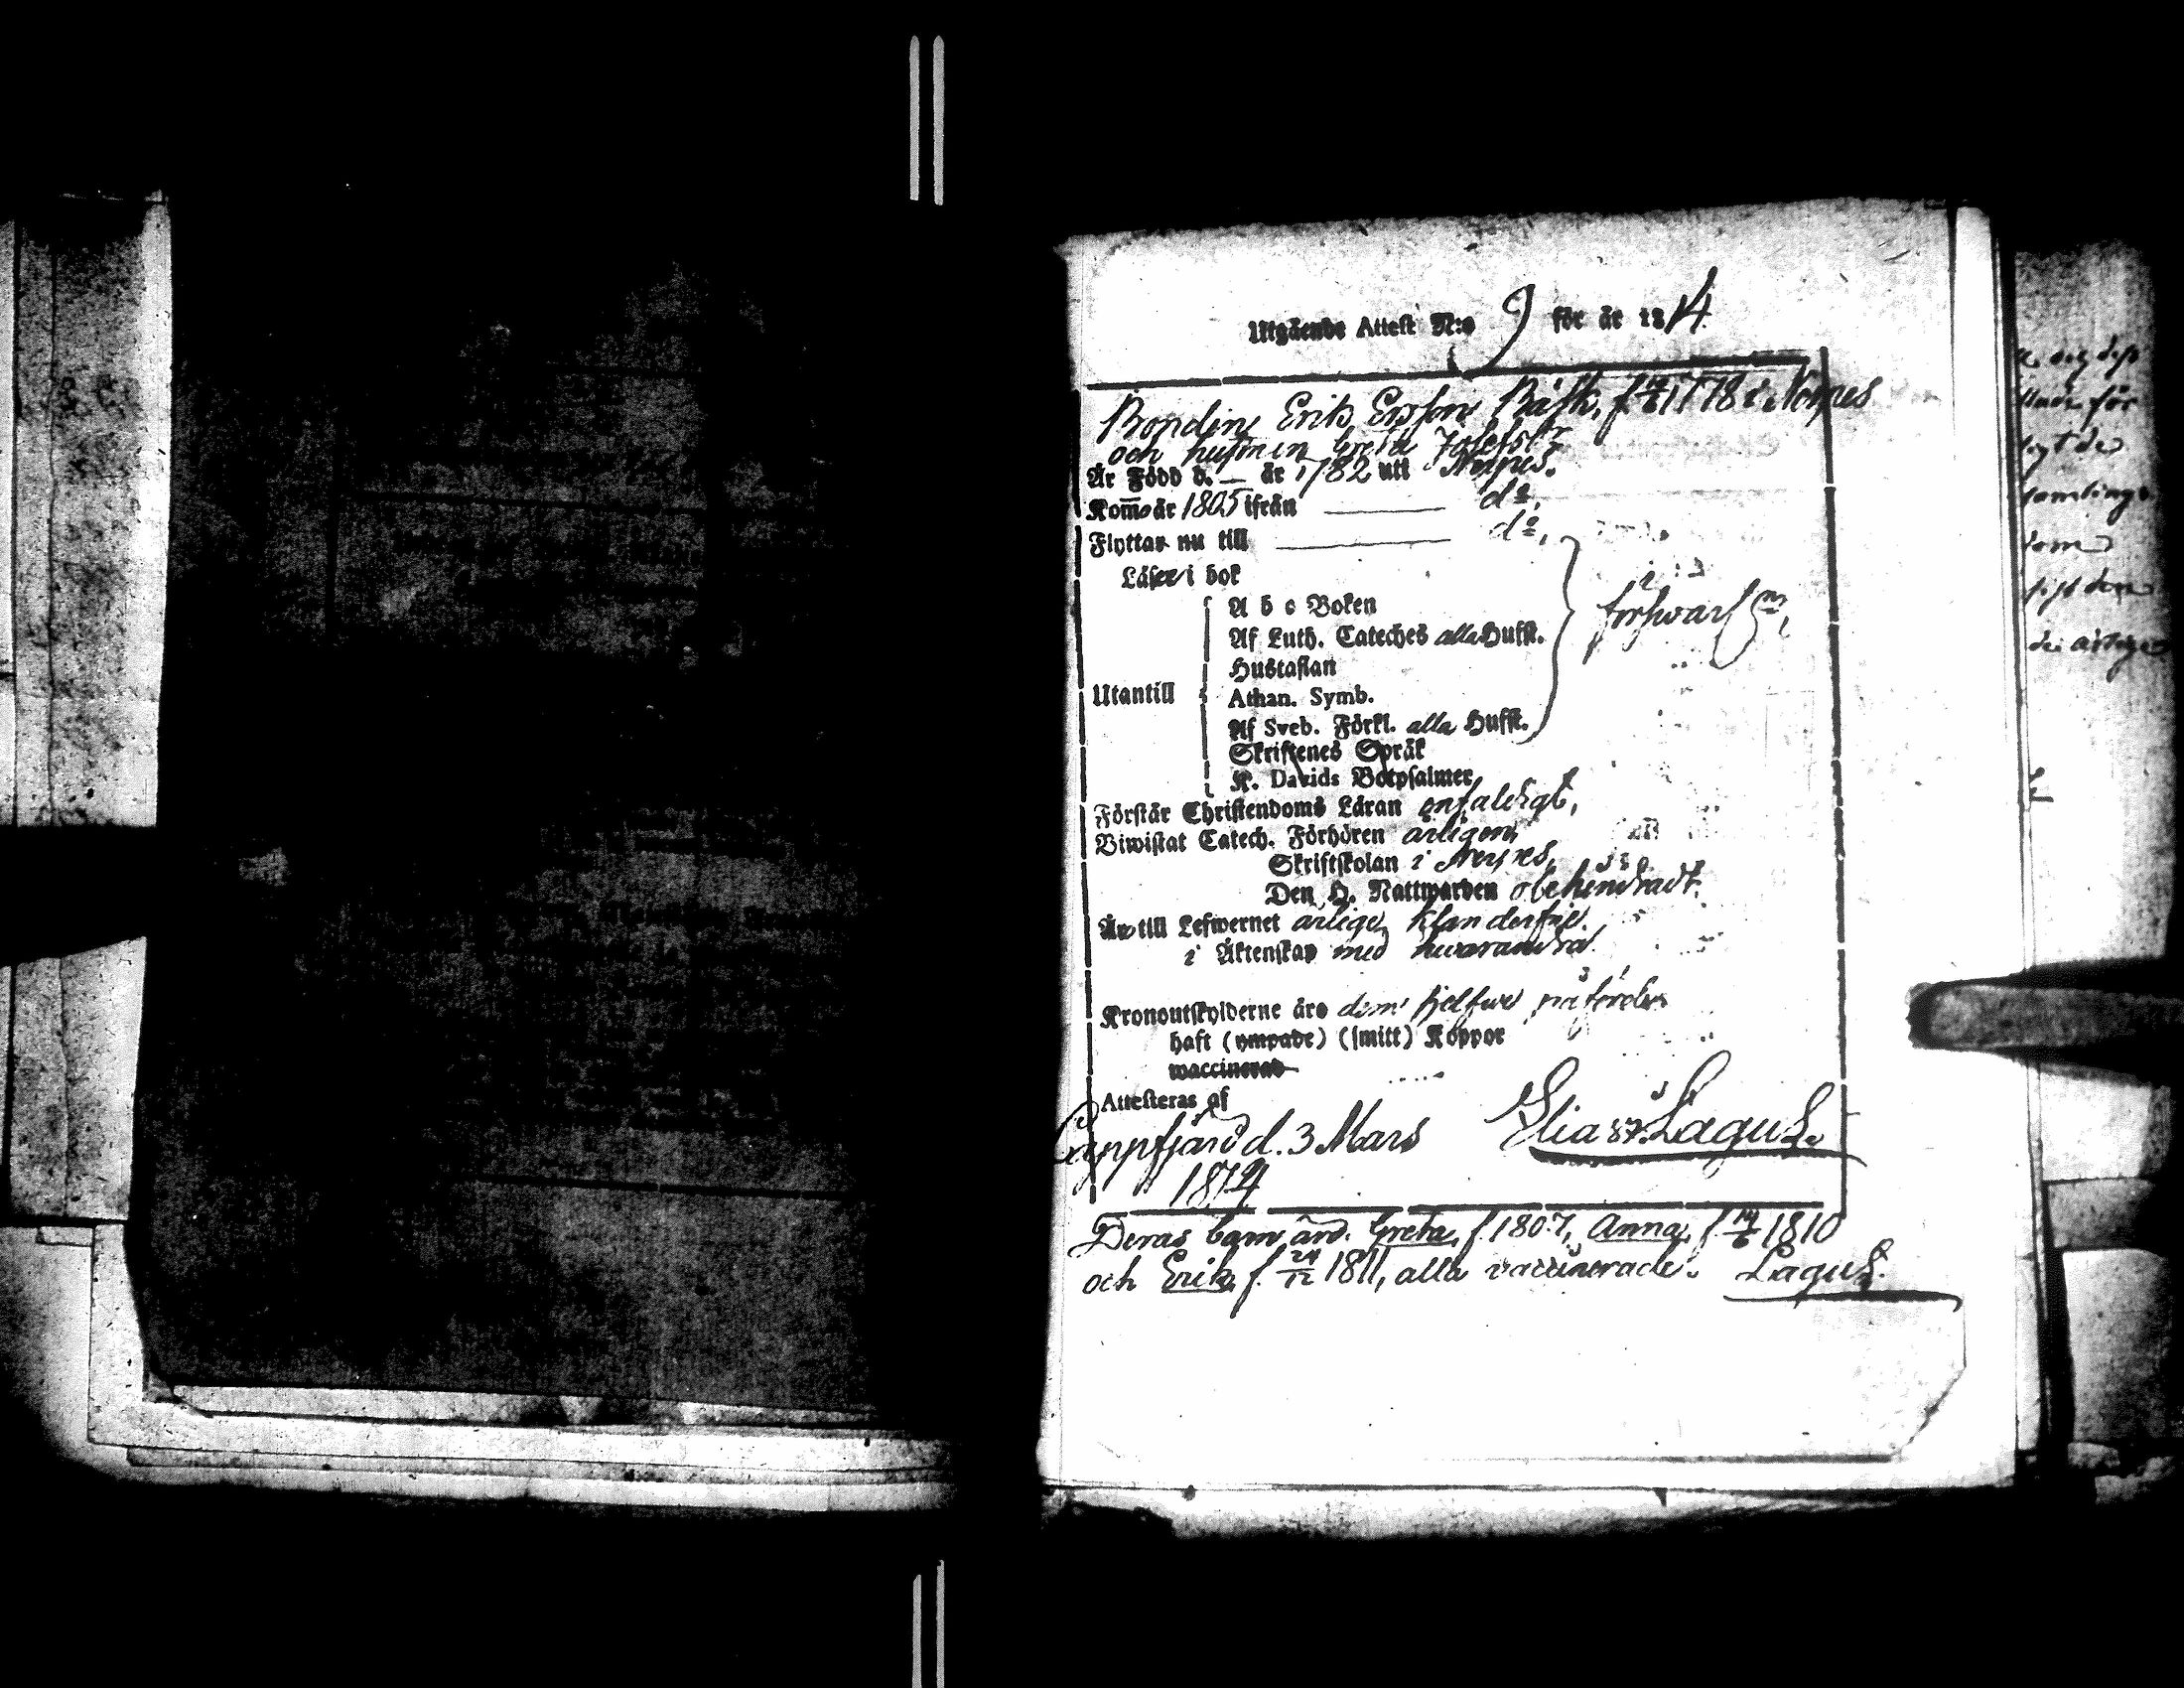 Utgående Attest N:o 9 för år 1814
Bonden Erik Ersson Båsk, f. 1778 i Nerpes
och hustrun Greta Josefsdr
Är Född d. — år 1782 utt Nerpes.
Kom̅o år 1805 ifrån — do,
Flyttar nu till — do,
Läser i bok
A b c Boken
Af Luth. Cateches alla Hufst.
förswarl.
Hustaflan
Utantill
Athan. Symb.
Af Sveb. Förkl. alla Hufst.
Skriftenes Språk
K. Davids Botpsalmer
Förstår Christendoms Läran enfaldigt,
Biwistat Catech. Förhören årligen,
Skriftskolan i Nerpes,
Den H. Nattwarden obehindradt.
Är till Lefwernet ärlige, klanderfrie.
i Äktenskap med hwarandra.
Kronoutskylderne äro dem sjelfwe påförde
haft (ympade) (smitt) Koppor
waccinerad
Attesteras af
Lappfjärd d. 3 Mars Elias Lagus.
1814
Deras barn äro. Greta, f. 1807, Anna, f. 14/6 1810
och Erik, f. 24/12 1811, alla vaccinerade. Lagus.